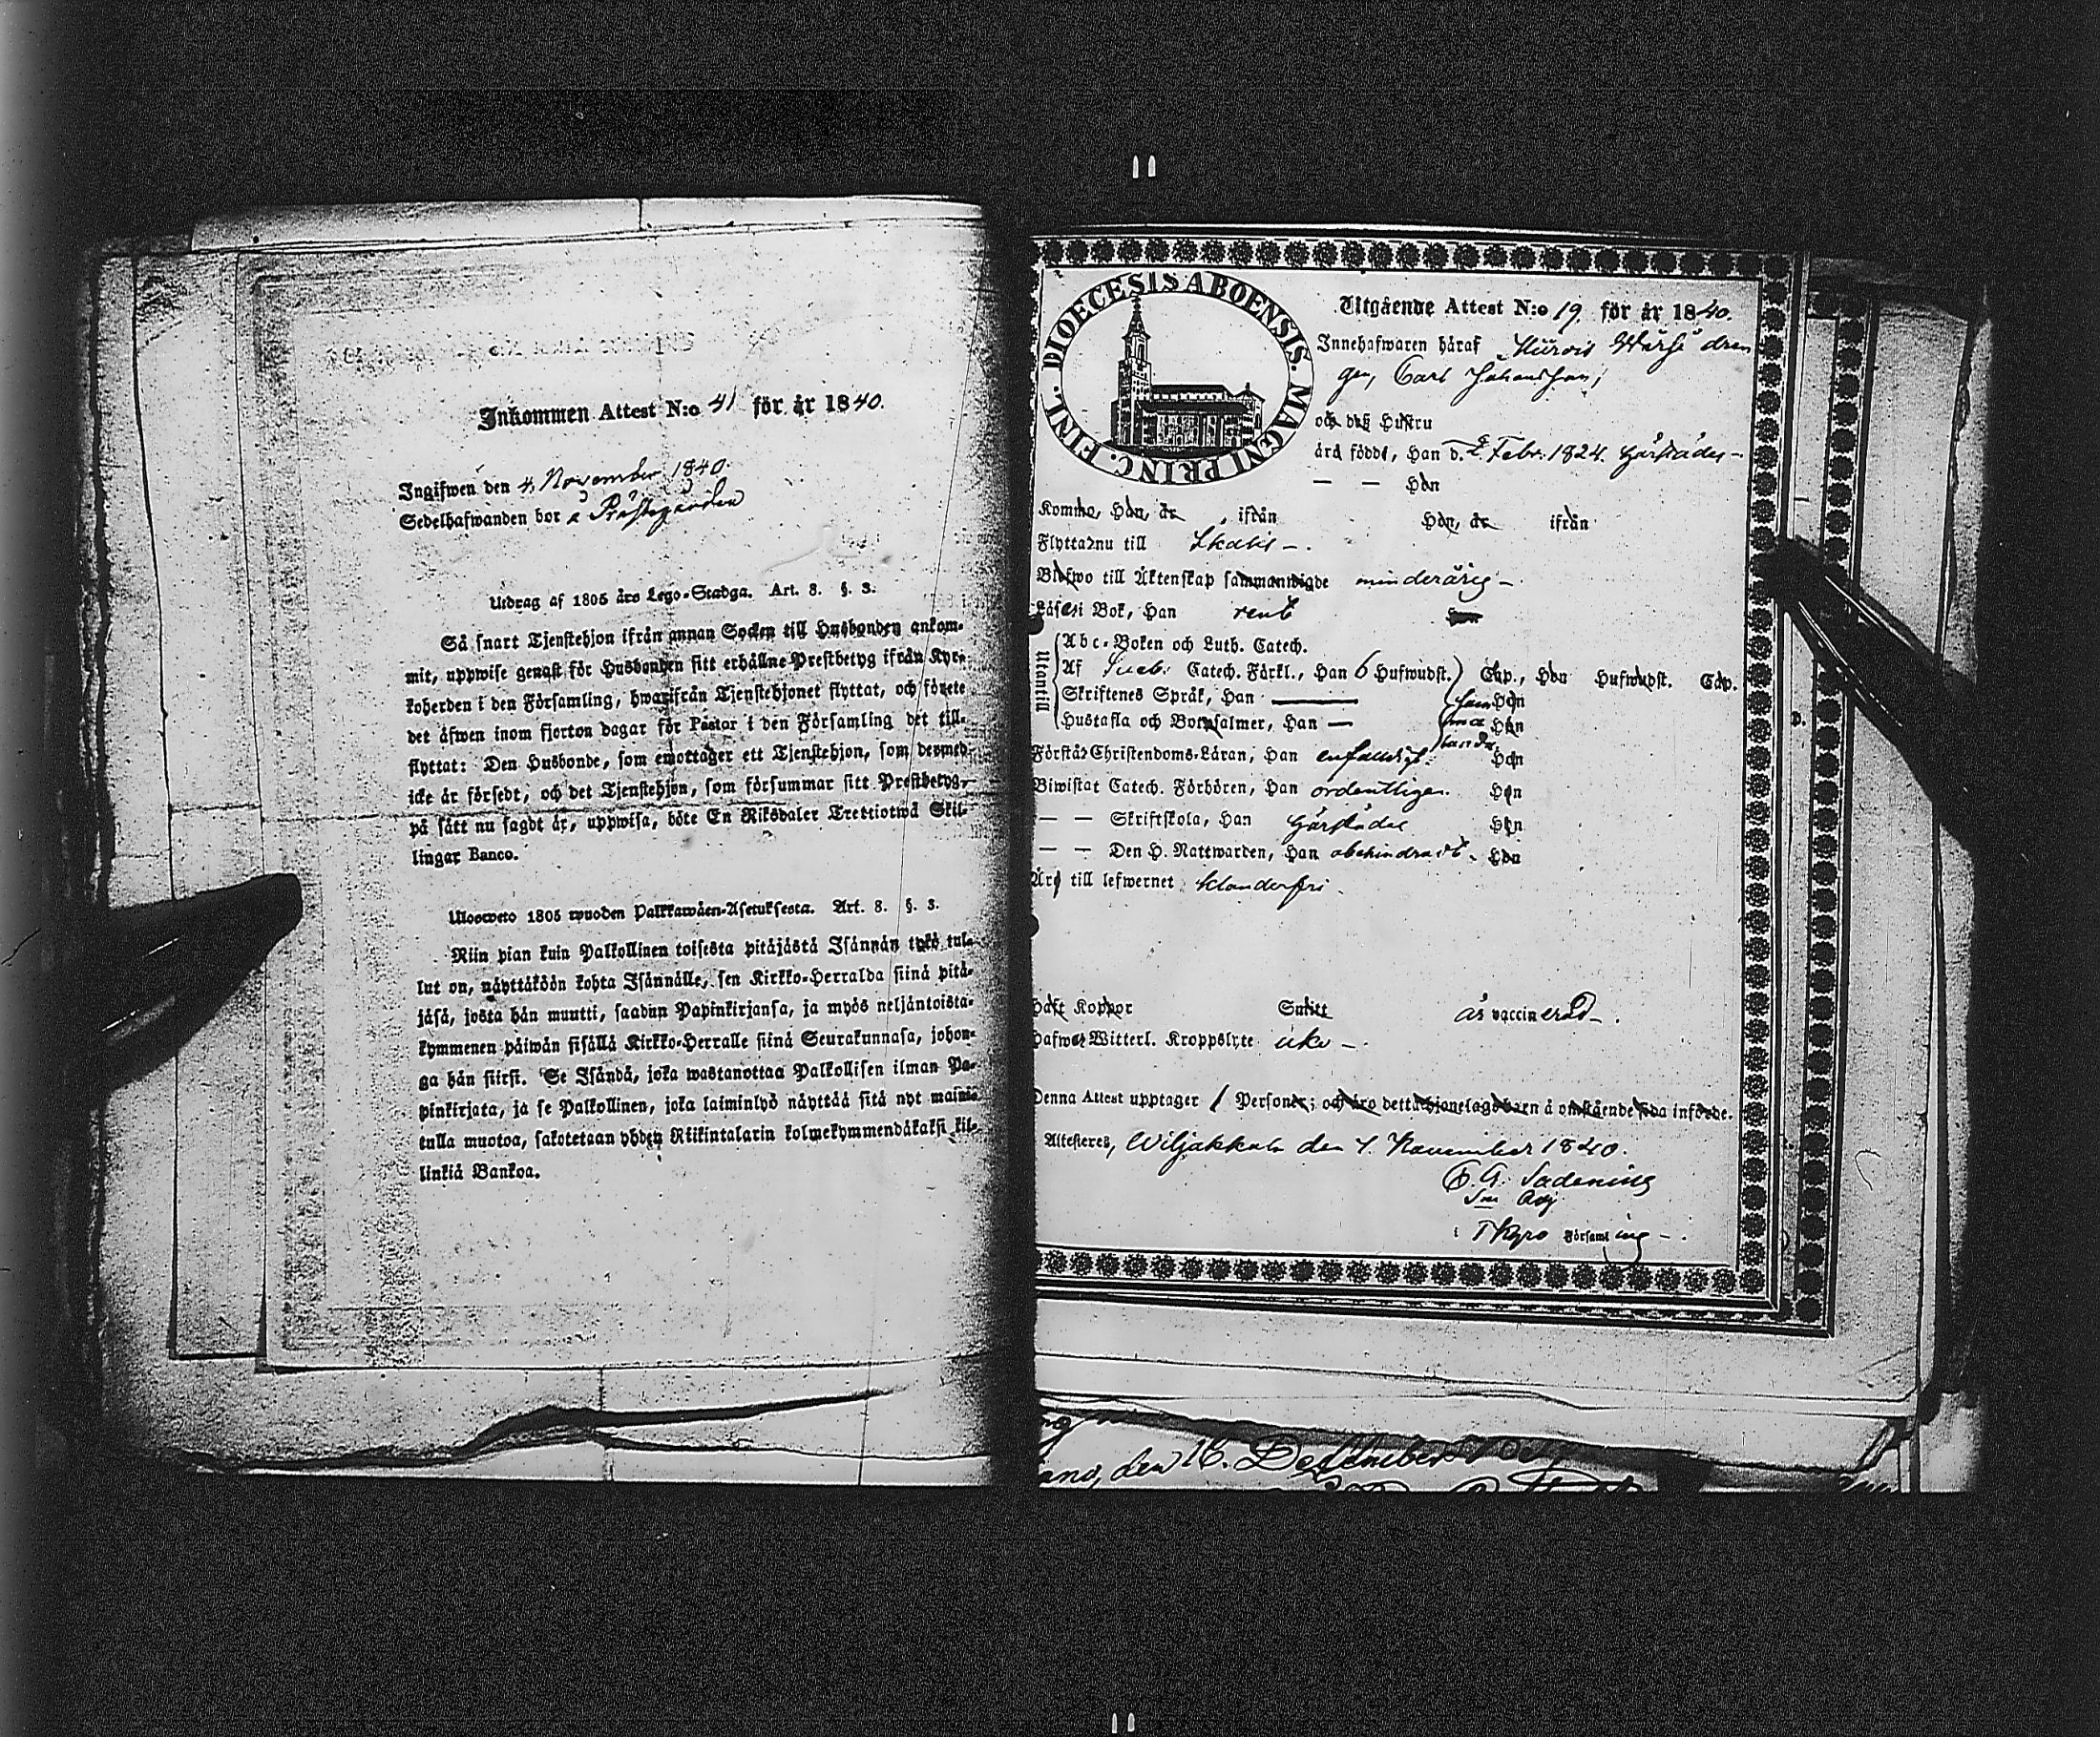 Inkommen Attest N:o 41 för år 1840.
Ingifwen den 4. November 1840.
Sedelhafwanden bor å Prästgården
Utdrag af 1805 års Lego-Stadga. Art. 8. §. 3.
Så snart Tjenstehjon ifrån annan Socken till Husbonden ankom-
mit, uppwise genast för Husbonden sitt erhållne Prestbetyg ifrån Kyr-
koherden i den Församling, hwarifrån Tjenstehjonet flyttat, och förete
det äfwen inom fjorton dagar för Pastor i den Församling det till-
flyttat: Den Husbonde, som emottager ett Tjenstehjon, som dermed
icke är försedt, och det Tjenstehjon, som försummar sitt Prestbetyg,
på sätt nu sagdt är, uppwisa, böte En Riksdaler Trettiotwå Skil-
lingar Banco.
Ulosweto 1805 wuoden Palkkawäen-Asetuksesta. Art. 8. §. 3.
Niin pian kuin Palkollinen toisesta pitäjästä Isännän tykö tul-
lut on, näyttäköön kohta Isännälle, sen Kirkko-Herralda siinä pitä-
jäsä, josta hän muutti, saadun Papinkirjansa, ja myös neljäntoista-
kymmenen päiwän sisällä Kirkko-Herralle siinä Seurakunnasa, johon-
ga hän siirsi. Se Isändä, joka wastanottaa Palkollisen ilman Pa-
pinkirjata, ja se Palkollinen, joka laiminlyö näyttää sitä nyt maini-
tulla muotoa, sakotetaan yhden Riikintalarin kolmekymmendäkaksi kil-
linkiä Bankoa.
DIOECESIS ABOENSIS. MAGNI PRINC. FINL.
Utgående Attest N:o 19. för år 1840.
Innehafwaren häraf dren
gen, Carl Johansson,
och deß Hustru
ärå född, Han d. 2. Febr. 1824. härstädes -
— — Hon
Komne, Han, år ifrån Hon, år ifrån
Flyttar nu till
Blefwo till Äktenskap sammanwigde minderårig -
Läser i Bok, Han rent Hon
Utantill
Abc-Boken och Luth. Catech.
Af Sweb. Catech. Förkl., Han 6 Hufwudst. Cap., Hon Hufwudst. Cap.
Skriftenes Språk, Han — Hon
Hustafla och Botpsalmer, Han — Hon
Förstår Christendoms-Läran, Han enfaldigt. Hon
Biwistat Catech. Förhören, Han ordentligen. Hon
— — Skriftskola, Han härstädes Hon
— — Den H. Nattwarden, Han obehindradt. Hon
Äro till lefwernet klanderfri.
Haft Koppor Sutitt är vaccinerad -.
Hafwer Witterl. Kroppslyte icke -.
Denna Attest upptager 1 Personer; och äro dettå hjonelags barn å omstående sida införde.
Attesteres, Wiljakkala den 1. November 1840.
Adj
i Tkyro Församling -.
den 16. December